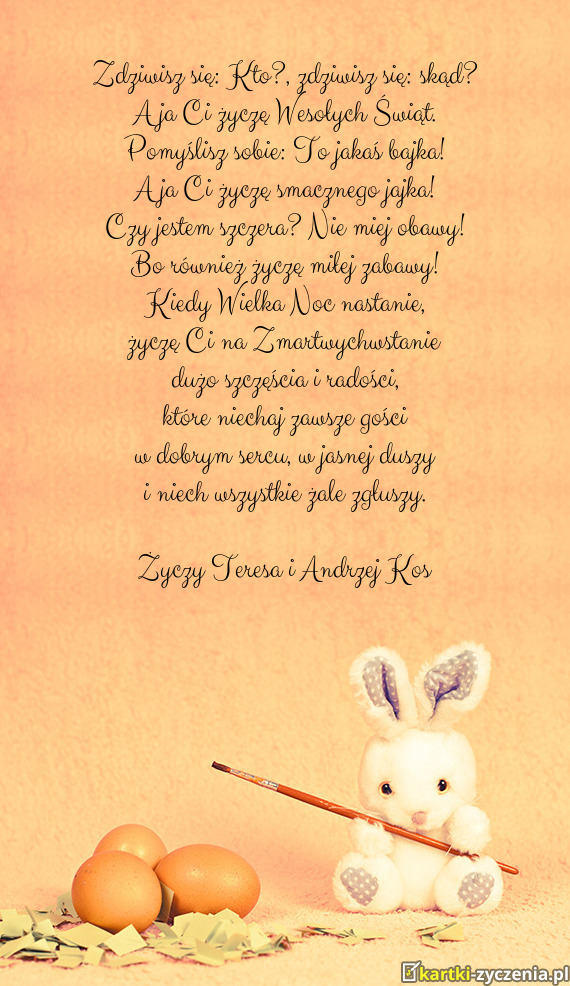 Zdziwisz się: Kto?, zdziwisz się: skąd?
A ja Ci życzę Wesołych Świąt.
Pomyślisz sobie: To jakaś bajka!
A ja Ci życzę smacznego jajka!
Czy jestem szczera? Nie miej obawy!
Bo również życzę miłej zabawy!
Kiedy Wielka Noc nastanie,
życzę Ci na Zmartwychwstanie
dużo szczęścia i radości,
które niechaj zawsze gości
w dobrym sercu, w jasnej duszy
i niech wszystkie żale zgłuszy.
Życzy Teresa i Andrzej Kos
kartki-zyczenia.pl